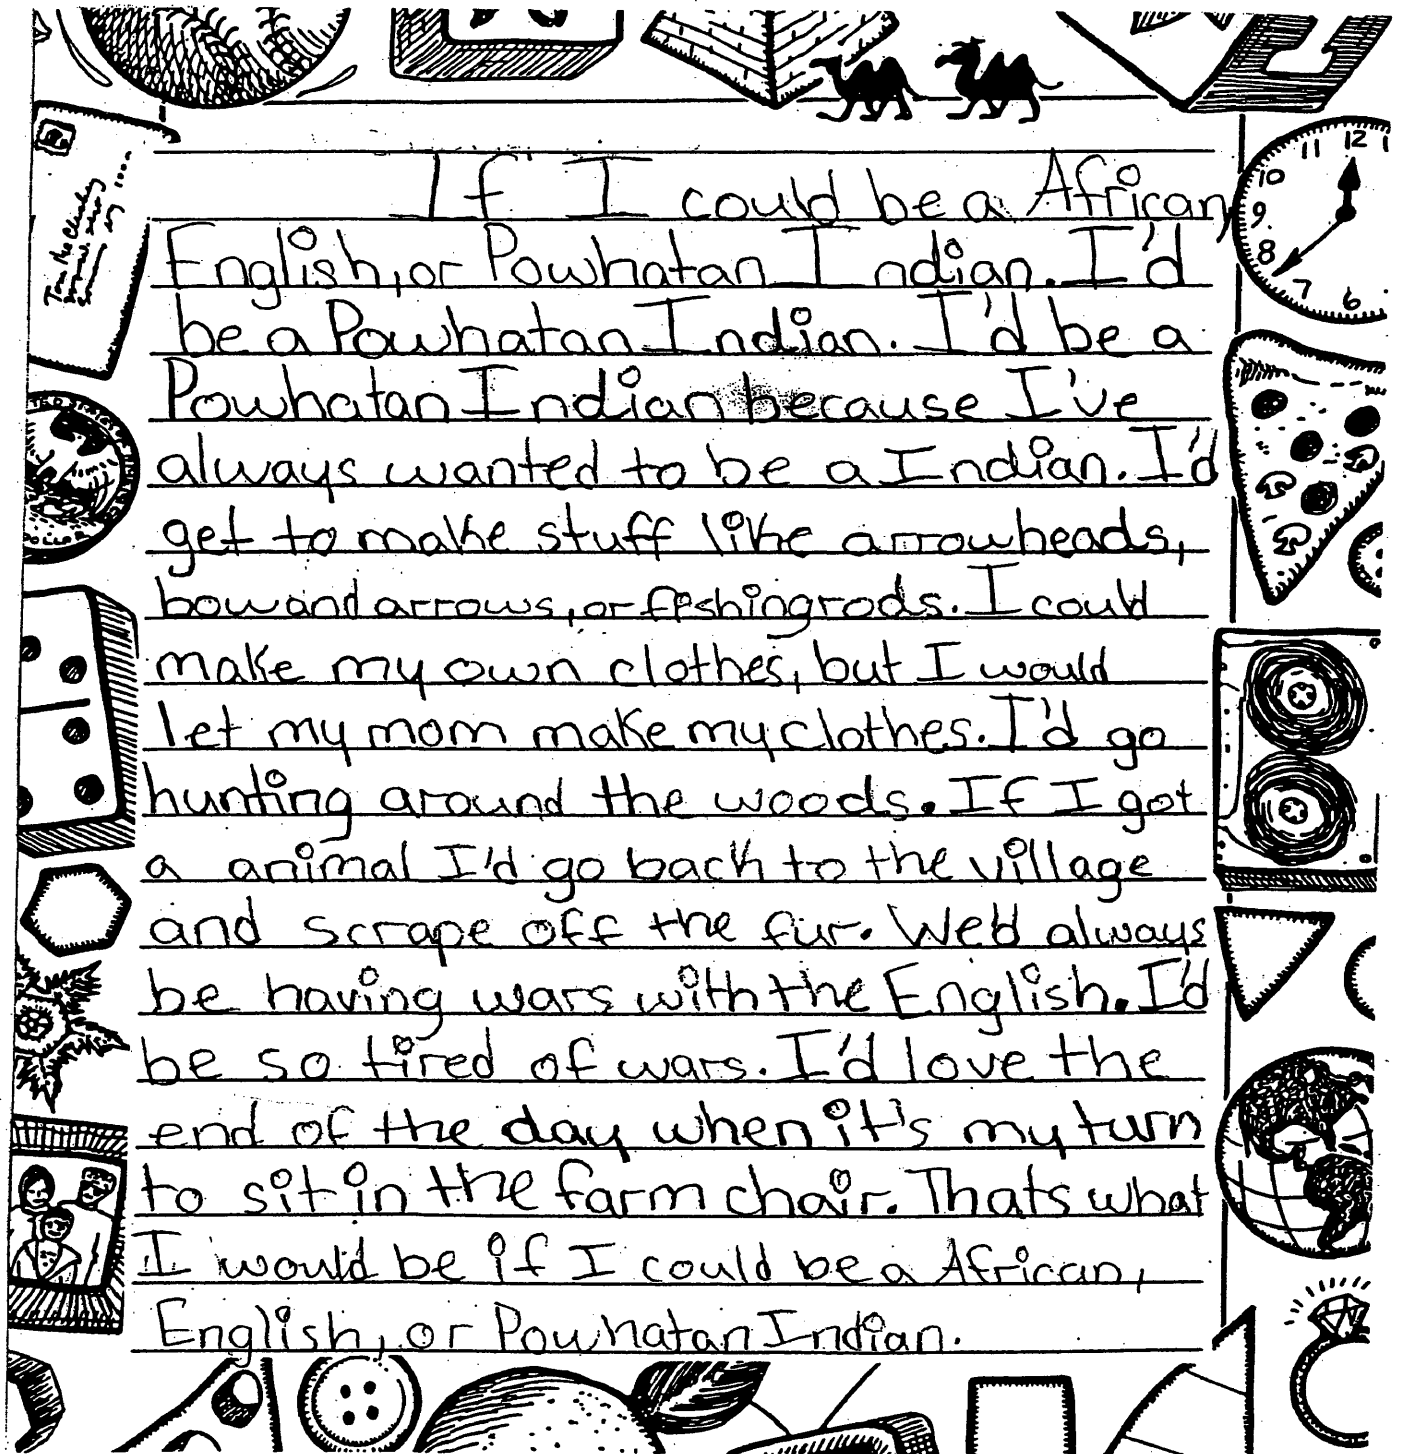 If I could be a African,
English, or Powhatan Indian. I'd
be a Powhatan Indian. I'd be a
Powhatan Indian because I've
always wanted to be a Indian. I'd
get to make stuff like arrowheads,
bow and arrows, or fishing rods. I could
make my own clothes, but I would
let my mom make my clothes. I'd go
hunting around the woods. If I got
a animal I'd go back to the village
and scrape off the fur. We'd always
be having wars with the English. I'd
be so tired of wars. I'd love the
end of the day when it's my turn
to sit in the farm chair. Thats what
I would be if I could be a African,
English, or Powhatan Indian.
11 12 1
10
9
8
7 6
DOLLAR